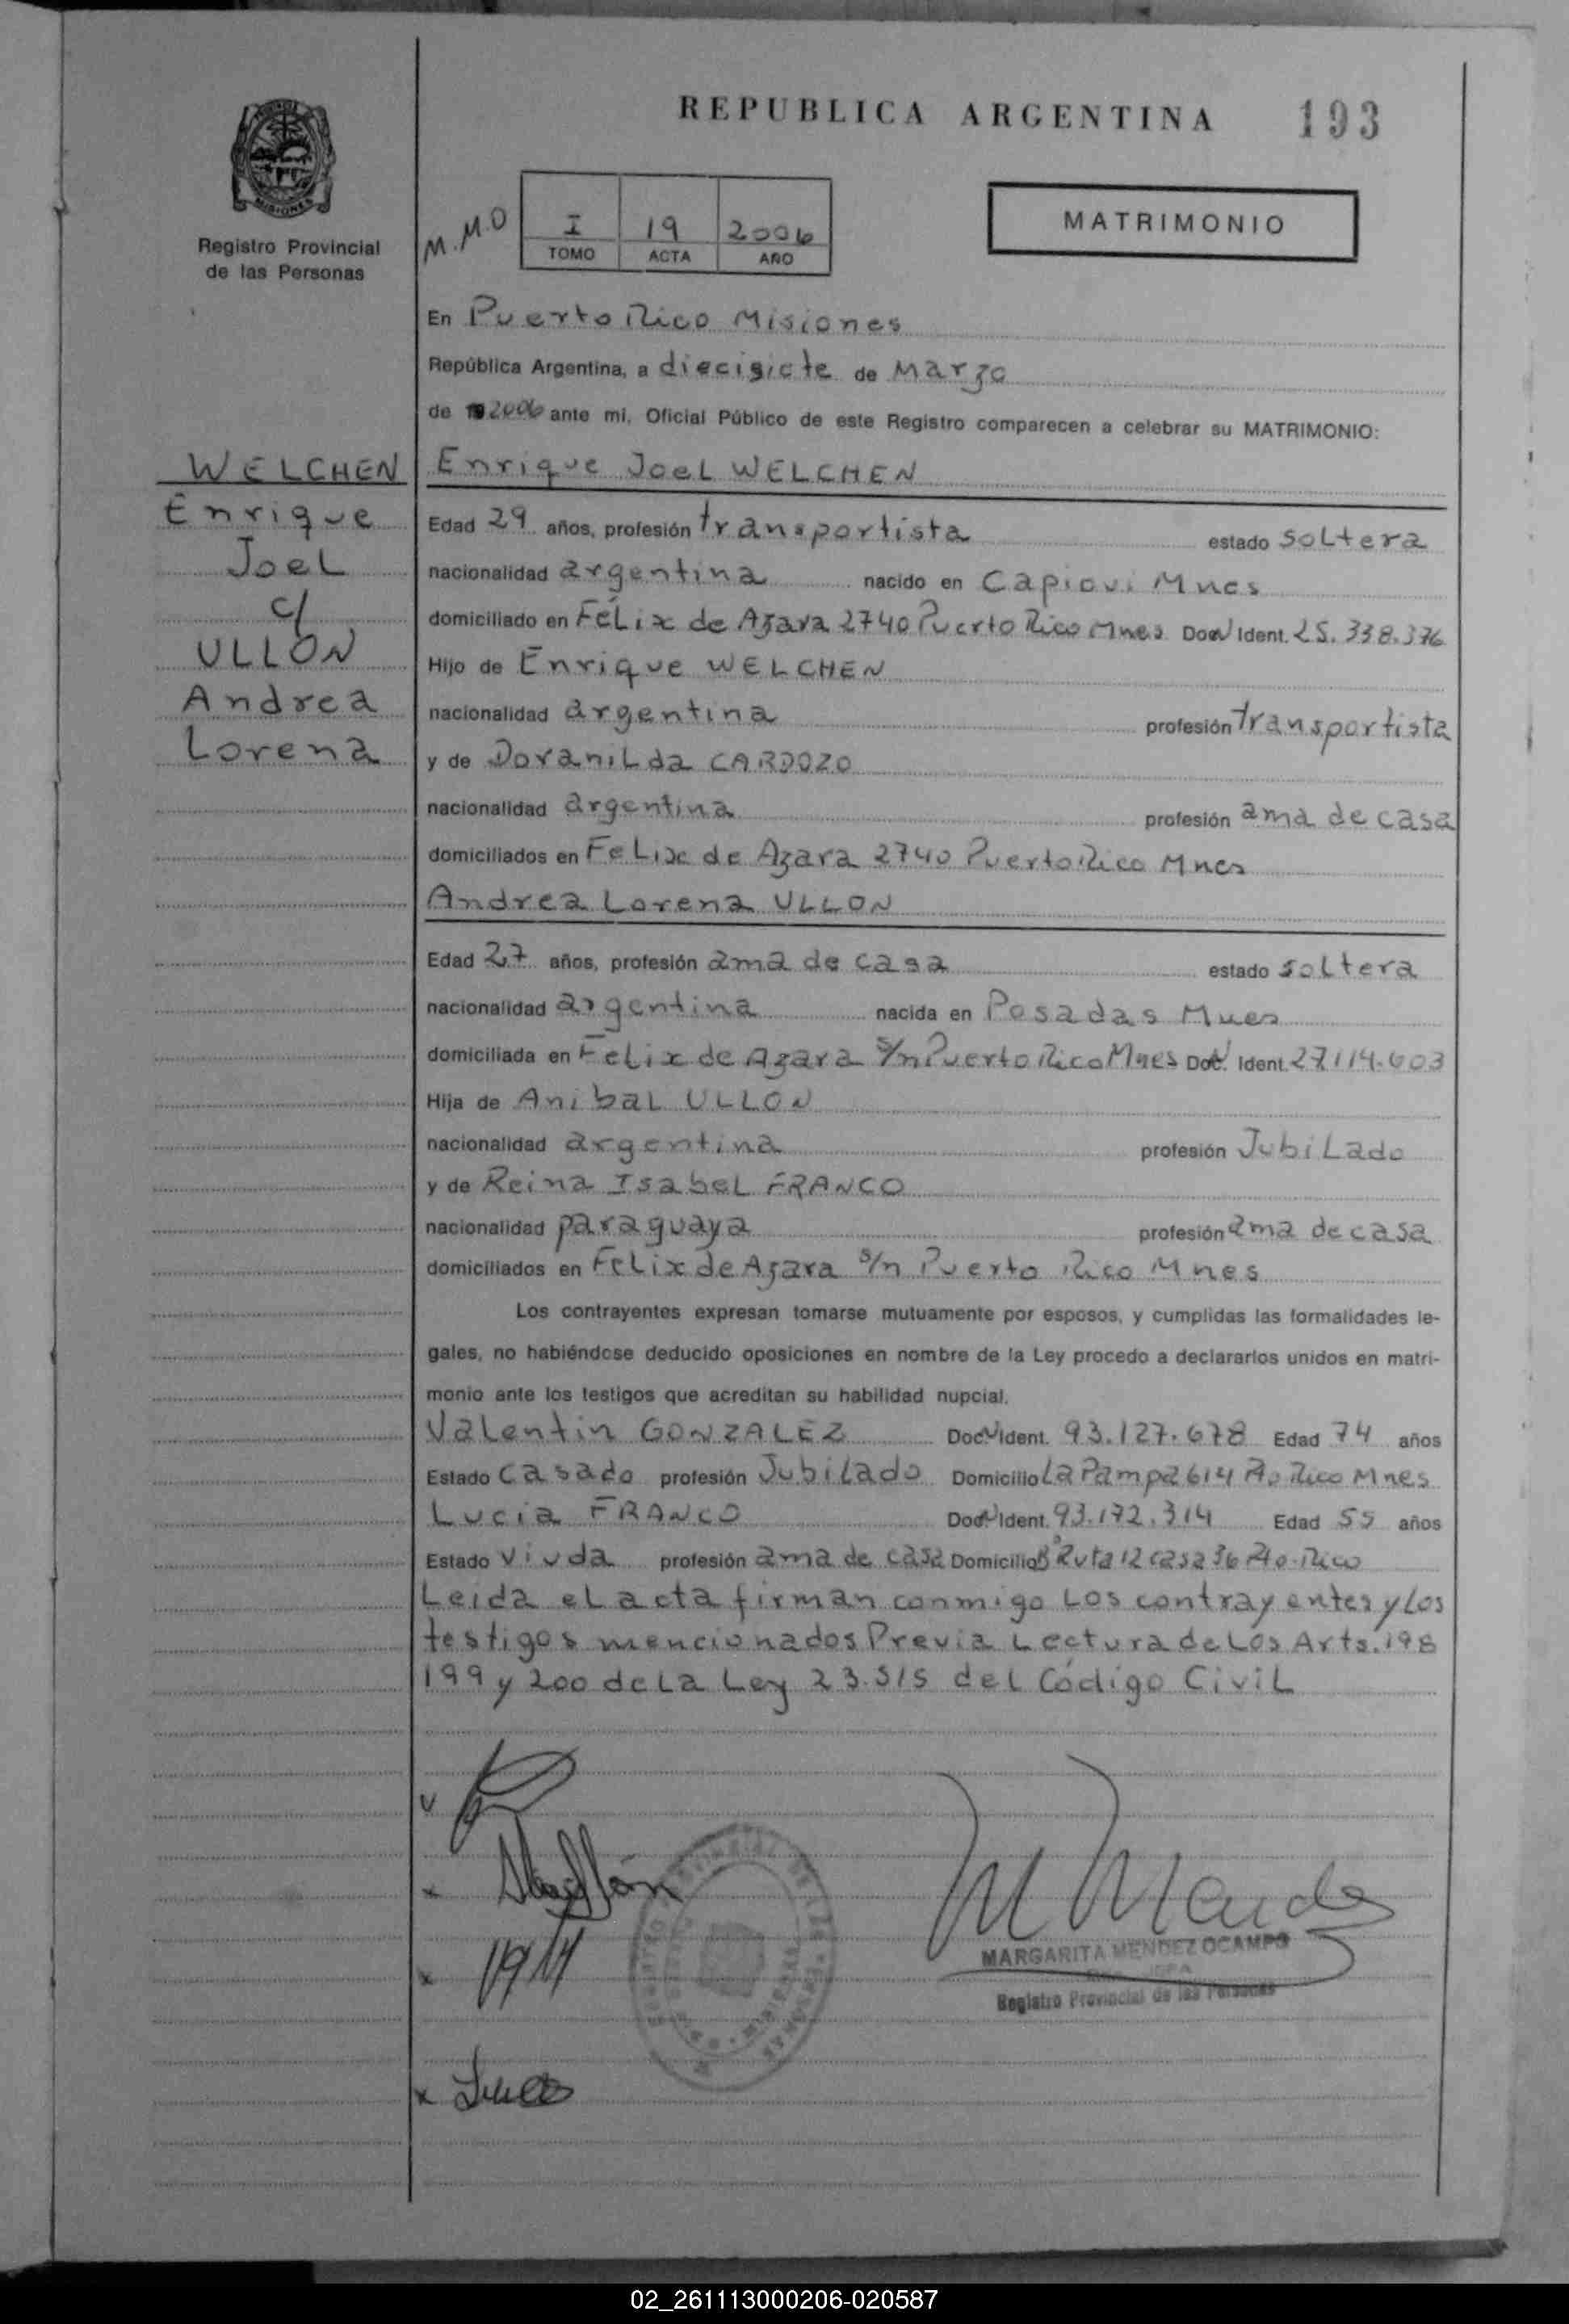 REPUBLICA ARGENTINA 193
MISIONES
Registro Provincial
de las Personas
M.M.O
I 19 2006
TOMO ACTA AÑO
MATRIMONIO
En Puerto Rico Misiones
República Argentina, a diecisiete de Marzo
de 2006 ante mi, Oficial Público de este Registro comparecen a celebrar su MATRIMONIO:
WELCHEN
Enrique
Joel
c/
ULLON
Andrea
Lorena
Enrique Joel WELCHEN
Edad 29 años, profesión transportista estado soltera
nacionalidad argentina nacido en Capiovi Mnes
domiciliado en Félix de Azara 2740 Puerto Rico Mnes Doc Ident. 25.338.376
Hijo de Enrique WELCHEN
nacionalidad argentina profesión transportista
y de Doranilda CARDOZO
nacionalidad argentina profesión ama de casa
domiciliados en Felix de Azara 2740 Puerto Rico Mnes
Andrea Lorena ULLON
Edad 27 años, profesión ama de casa estado soltera
nacionalidad argentina nacida en Posadas Mnes
domiciliada en Felix de Azara s/n Puerto Rico Mnes Doc. Ident. 27.114.603
Hija de Anibal ULLON
nacionalidad argentina profesión Jubilado
y de Reina Isabel FRANCO
nacionalidad paraguaya profesión ama de casa
domiciliados en Felix de Azara s/n Puerto Rico Mnes
Los contrayentes expresan tomarse mutuamente por esposos, y cumplidas las formalidades le-
gales, no habiéndose deducido oposiciones en nombre de la Ley procedo a declararlos unidos en matri-
monio ante los testigos que acreditan su habilidad nupcial.
Valentin GONZALEZ Doc Ident. 93.127.678 Edad 74 años
Estado Casado profesión Jubilado Domicilio La Pampa 614 Pto Rico Mnes
Lucia FRANCO Doc Ident. 93.172.314 Edad 55 años
Estado viuda profesión ama de casa Domicilio Bº Ruta 12 casa 36 Pto. Rico
Leida el acta firman conmigo los contrayentes y los
testigos mencionados Previa Lectura de Los Arts. 198
199 y 200 de La Ley 23.515 del Código Civil
MARGARITA MENDEZ OCAMPO
JEFA
Registro Provincial de las Personas
02_261113000206-020587